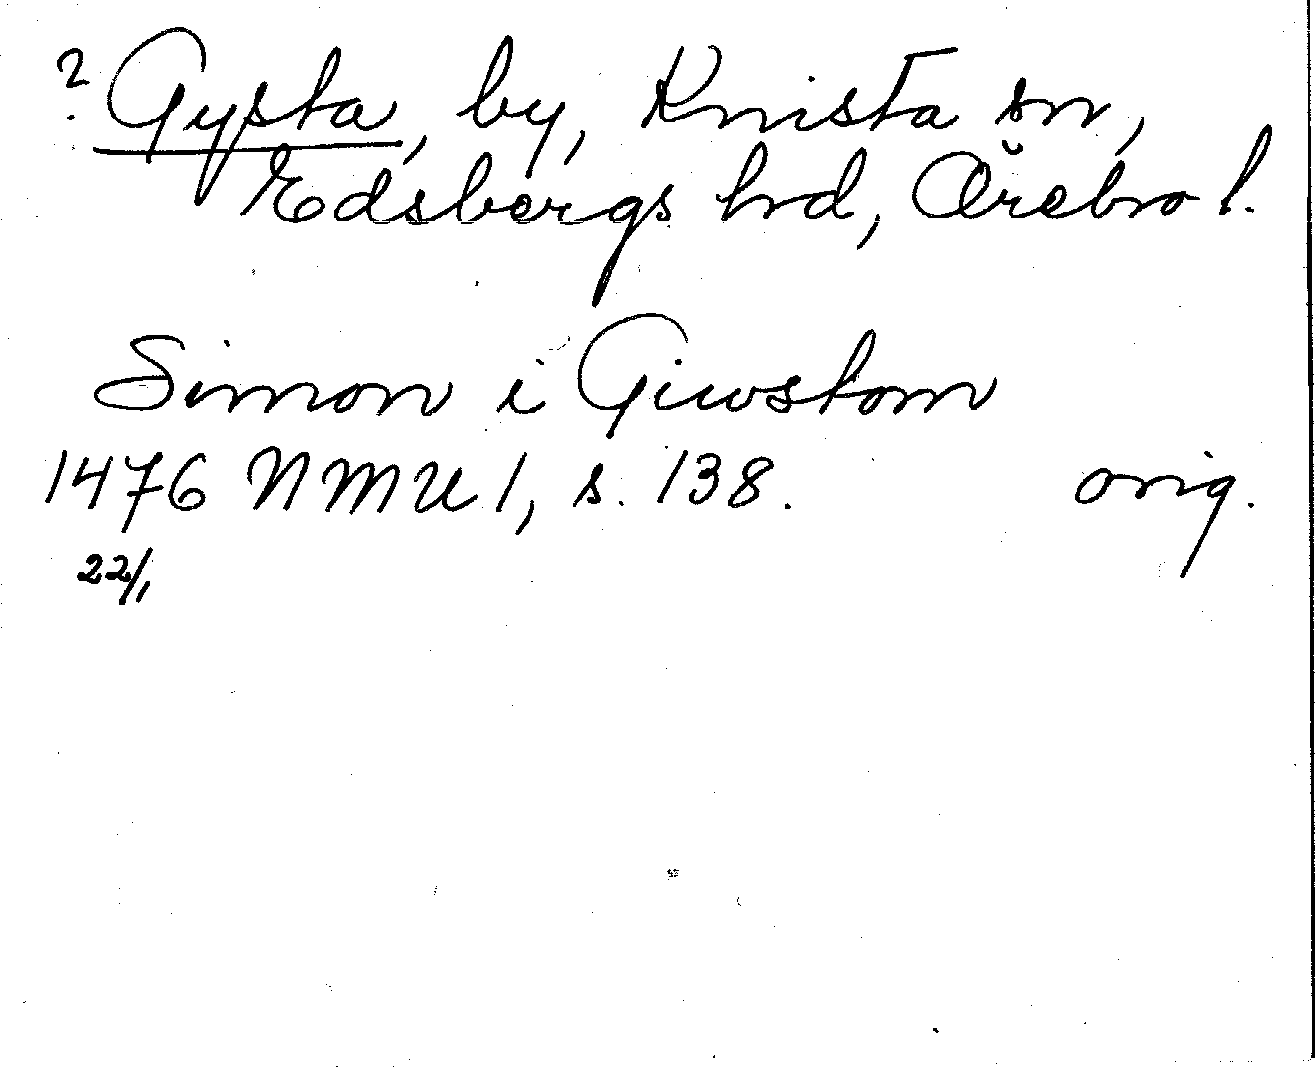 ? Gysta, by, Knista sn,
Edsbergs hrd, Örebro l.
Simon i Giwstom
1476 NMU 1, s. 138. orig.
22/1